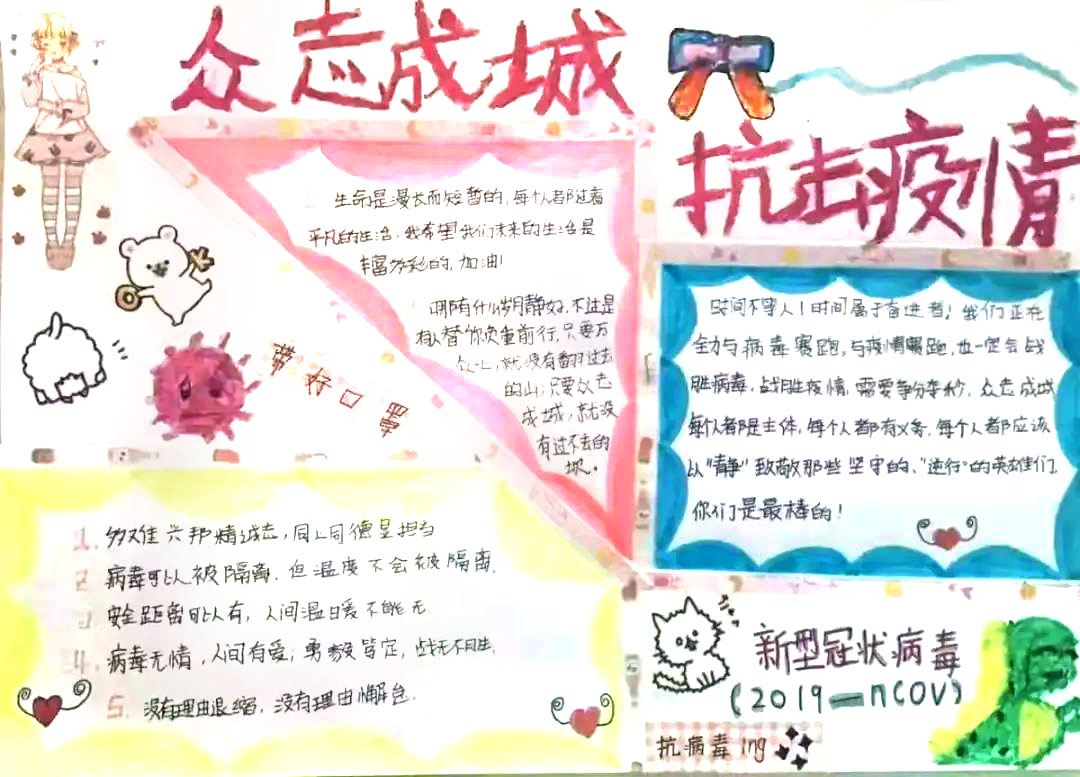 众志成城
抗击疫情
生命是漫长而短暂的,每个人都过着
平凡的生活,我希望我们未来的生活是
丰富多彩的,加油!
哪有什么岁月静好,不过是
有人替你负重前行,只要万
众一心,就没有翻不过去
的山;只要众志
成城,就没
有过不去的
坎。
戴好口罩
时间不等人!时间属于奋进者!我们正在
全力与病毒赛跑,与疫情赛跑,也一定会战
胜病毒,战胜疫情,需要争分夺秒,众志成城
每个人都是主体,每个人都有义务,每个人都应该
以"静"致敬那些坚守的、"逆行"的英雄们
你们是最棒的!
1. 多难兴邦精诚志,同心同德显担当
2 病毒可以被隔离,但温度不会被隔离.
3 安全距离可以有,人间温暖不能无
4. 病毒无情,人间有爱;勇毅笃定,战无不胜.
5. 没有理由退缩,没有理由懈怠.
新型冠状病毒
(2019—nCOV)
抗病毒 ing